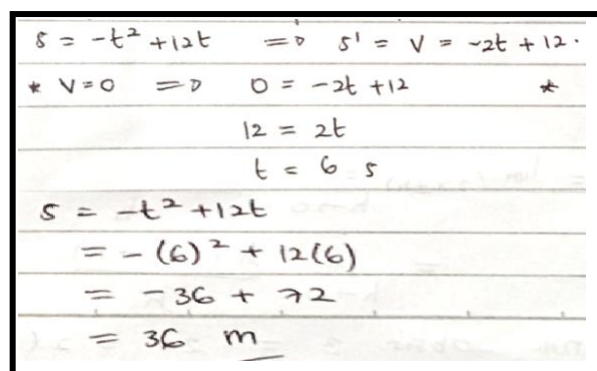 s = -t² + 12t => s' = v = -2t + 12.
* v=0 => 0 = -2t + 12 *
12 = 2t
t = 6 s
s = -t² + 12t
= -(6)² + 12(6)
= -36 + 72
= 36 m